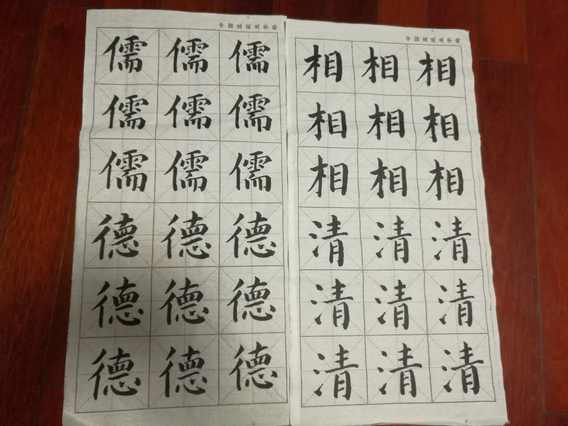 儒儒儒
儒儒儒
儒儒儒
德德德
德德德
德德德
相相相
相相相
相相相
清清清
清清清
清清清